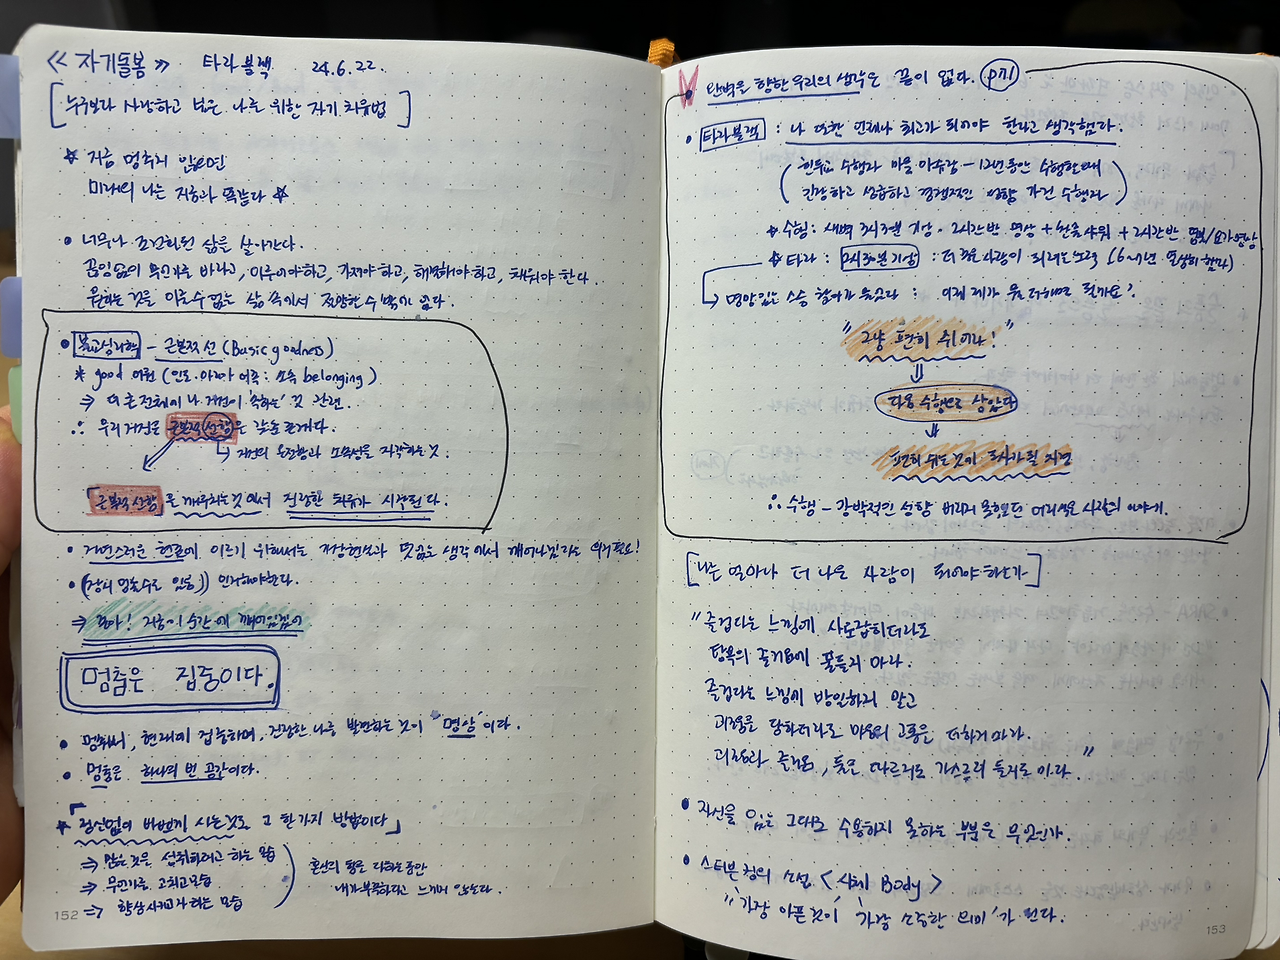 ≪ 자기돌봄 ≫ 타라 블랙 24.6.22.
[누구보다 사랑하고 싶은 나를 위한 자기 치유법]
* 지금 멈추지 않으면
미래의 나는 지금과 똑같다 *
• 너무나 조건화된 삶을 살아간다.
끊임없이 무언가를 바라고, 이루어야하고, 가져야 하고, 해결해야하고, 채워야 한다.
원하는 것을 이룰 수 없는 삶 속에서 절망할 수 밖에 없다.
• 불교심리학 - 근본적 선 (Basic goodness)
* good 어원 (인도.아리아 어족 : 소속 belonging)
⇒ 더 큰 전체에 나 자신이 '속하는' 것 관련.
∴ 우리 자신은 근본적 선함을 갖춘 존재다.
↳ 자신의 온전함과 소속성을 자각하는 것.
「근본적 선함」을 깨우치는 것에서 진정한 치유가 시작된다.
• 자연스러운 현존에 이르기 위해서는 저장현식과 뜻깊은 생각에서 깨어나겠다는 의지 필요!
• (길이 없을수도 있음) 인지해야한다.
⇒ 돌아! 지금 이 순간에 깨어있음이
멈춤은 집중이다.
• 멈춰서, 현재에 접촉하며, 건강한 나를 발견하는 것이 "명상"이다.
• 멈춤은 하나의 빈 공간이다.
* 「정신없이 바쁘게 사는것도 그 한가지 방법이다」
⇒ 많은 것을 섭취하려고 하는 모습
⇒ 무언가를 고치고 모습 혼신의 힘을 다하는 동안
⇒ 향상시키고자 하는 모습 내가 부족하다고 느끼지 않는다.
152
• 완벽을 향한 우리의 생각은 끝이 없다. p71
• 타라블랙 : 나 또한 언제나 최고가 되어야 한다고 생각했다.
(힌두교 수행자 마을 아슈람 - 12년동안 수행할때
긴장하고 성급하고 경쟁적인 성향 가진 수행자)
* 수행 : 새벽 3시 30분 기상 - 2시간반 명상 + 찬물샤워 + 2시간반 명상/요가 명상
* 타라 : 2시 30분 기상 : 더 좋은 사람이 되려는 노력 (6~7년 열심히 했다)
↳ 명망있는 스승 찾아가 물었다 : 이제 제가 뭘 더해야 될까요?
"그냥 편히 쉬어라!"
⇓
다음 수행으로 삼았다
⇓
편히 쉬는 것이 도사가 될 지언
∴ 수행 - 강박적인 성향 버리지 못했던 어리석은 사람의 이야기.
[나는 얼마나 더 나은 사람이 되어야 하는가]
"즐겁다는 느낌에 사로잡히더라도
탐욕의 즐거움에 물들지 마라.
즐겁다는 느낌에 방일하지 말고
괴로움을 당하더라도 마음의 고통을 더하지 마라.
괴로움과 즐거움, 둘은 따르지도 거스르려 들지도 마라."
• 자신을 있는 그대로 수용하지 못하는 부분은 무엇인가.
• 스티븐 킹의 소설 <시체 Body>
"가장 아픈것이 '가장 소중한 의미'가 된다.
153